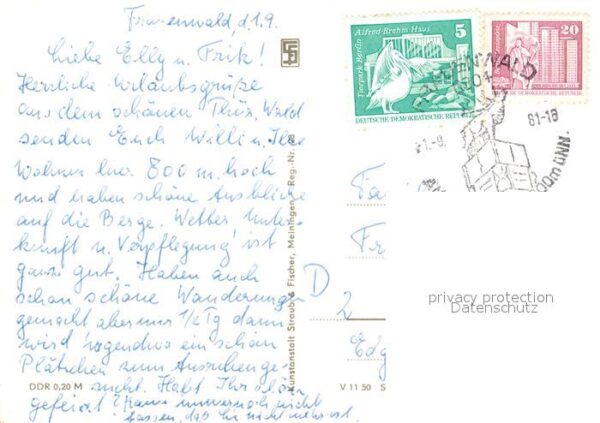 Frauenwald, d. 1.9.
Liebe Elly u. Fritz!
Herzliche Urlaubsgrüße
aus dem schönen Thür. Wald
senden Euch Willi u. Ilse
Wohnen hier 800 m. hoch
und haben schöne Ausblicke
auf die Berge. Wetter Unter-
kunft u. Verpflegung ist
ganz gut. Haben auch
schon schöne Wanderungen
gemacht aber nur 1/2 Tg dann
wird irgendwo ein schön
Plätzchen zum Ausruhen ge-
sucht. Habt Ihr schön
gefeiert? Kann immer noch nicht
fassen, daß sie nicht mehr ist.
DDR 0,20 M
Kunstanstalt Straub & Fischer, Meiningen · Reg.-Nr.
V 11 50 S
Alfred-Brehm-Haus
5
Tierpark Berlin
DEUTSCHE DEMOKRATISCHE REPUBLIK
20
DEUTSCHE DEMOKRATISCHE REPUBLIK
FRAUENWALD
81-18
800m ü.NN.
Fa
Fr
D
2
Edg
privacy protection
Datenschutz